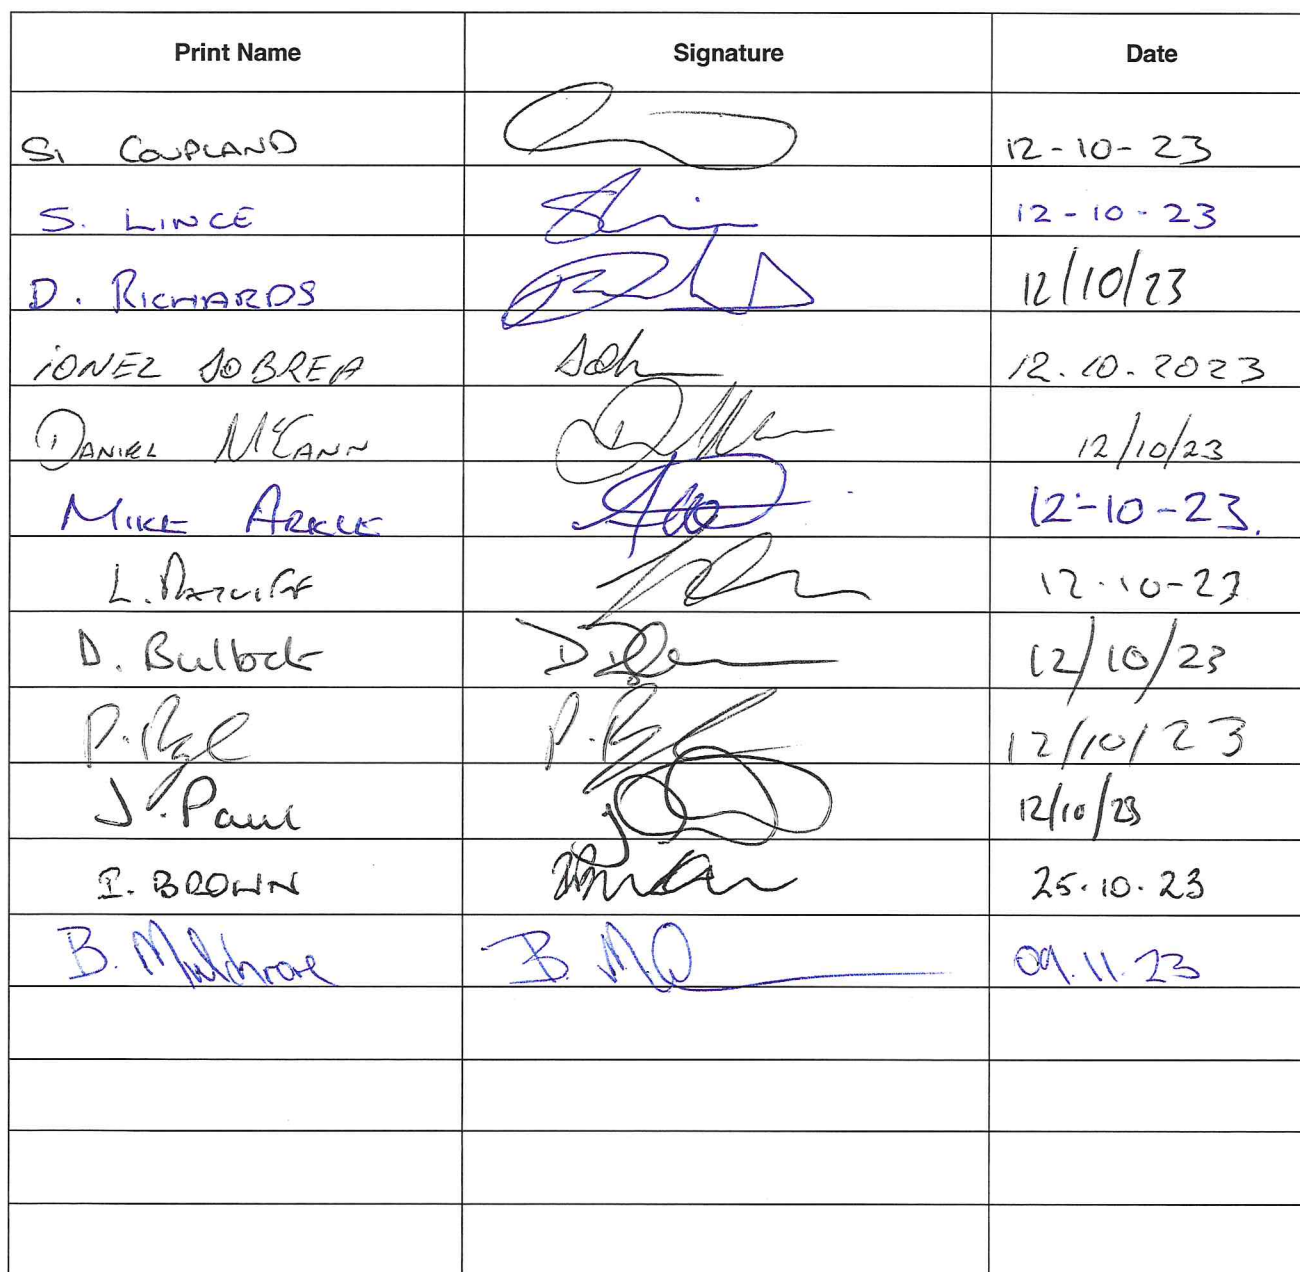 Print Name Signature Date
Si COUPLAND 12-10-23
S. LINCE 12-10-23
D. RICHARDS 12/10/23
iONEL DOBREA 12.10.2023
DANIEL McCANN 12/10/23
MIKE ARKLE 12-10-23.
L. RATCLIFF 12-10-23
D. Bullock 12/10/23
P. 12/10/23
J. Paul 12/10/23
I. BROWN 25.10.23
B. 09.11.23